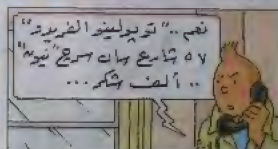 نعم .. "توبولينو الفريدو"
٥٧ شارع سان سرج "نيون"
.. ألف شكر ...